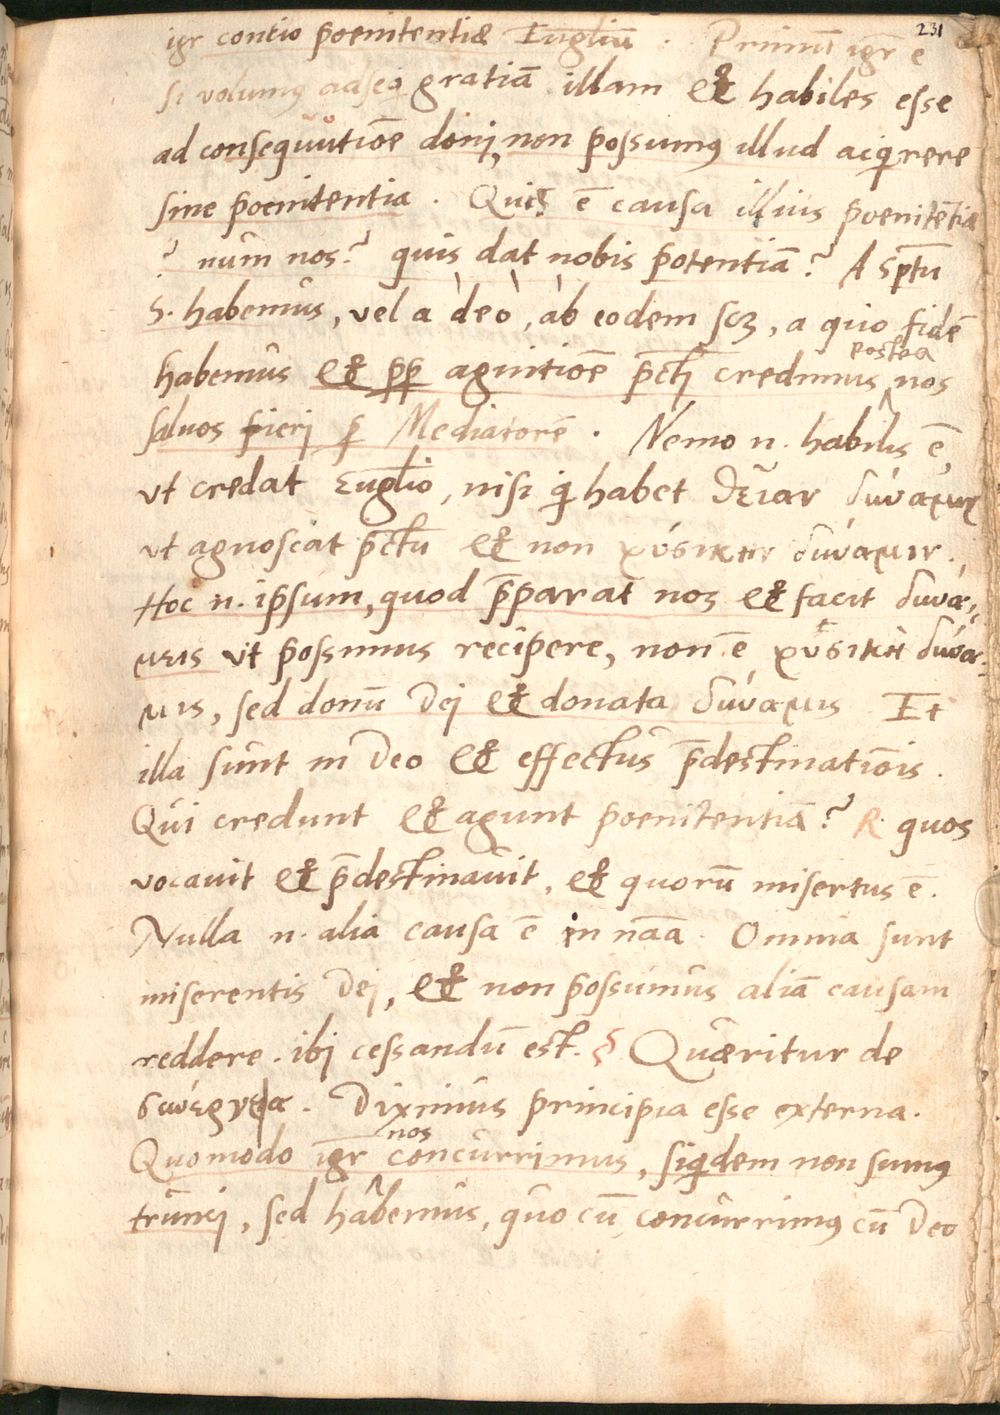 231
igr contio poenitentiæ Euglium̄. Primū igr ē
si volumus adseq̄ gratiā illam & habiles esse
ad consequutiōē donj, non possumus illud acq̄rere
sine poenitentia. Quis ē causa illius poenitētiæ
? num nos? quis dat nobis potentiā? A sptū
S. habemus, vel a deo, ab eodem scz, a quo fidē
habemus & pp̄ agnitiōē pctj credimus postea nos
saluos fierj p̄ Mediatorē. Nemo n. habilis ē
ut credat Euglio, nisi q̄ habet θείαν δύναμιν
ut agnoscat pctū & non φύσικὴν δύναμιν.
Hoc n. ipsum, quod p̄parat nos & facit δυνά-
μεις ut possimus recipere, non ē φύσικὴ δύνα-
μις, sed donū Dej & donata δύναμις Et
illa sunt in Deo & effectus p̄destinatiōis.
Qui credunt & agunt poenitentiā? R quos
vocavit & p̄destinavit, & quorū misertus ē.
Nulla n. alia causa ē in nāā. Omnia sunt
miserentis Dej, & non possumus aliā causam
reddere. ibj cessandū est. Quæritur de
συνεργίᾳ. Diximus principia esse externa.
Quomodo igr nos concurrimus, siq̄dem non sumus
truncj, sed habemus, quo cū concurrimus cū Deo